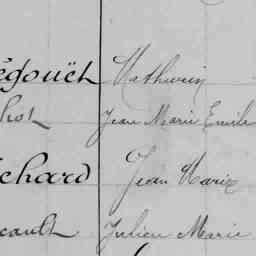 égouët Mathurin
hot Jean Marie Emile
chard Jean Marie
cault Julien Marie